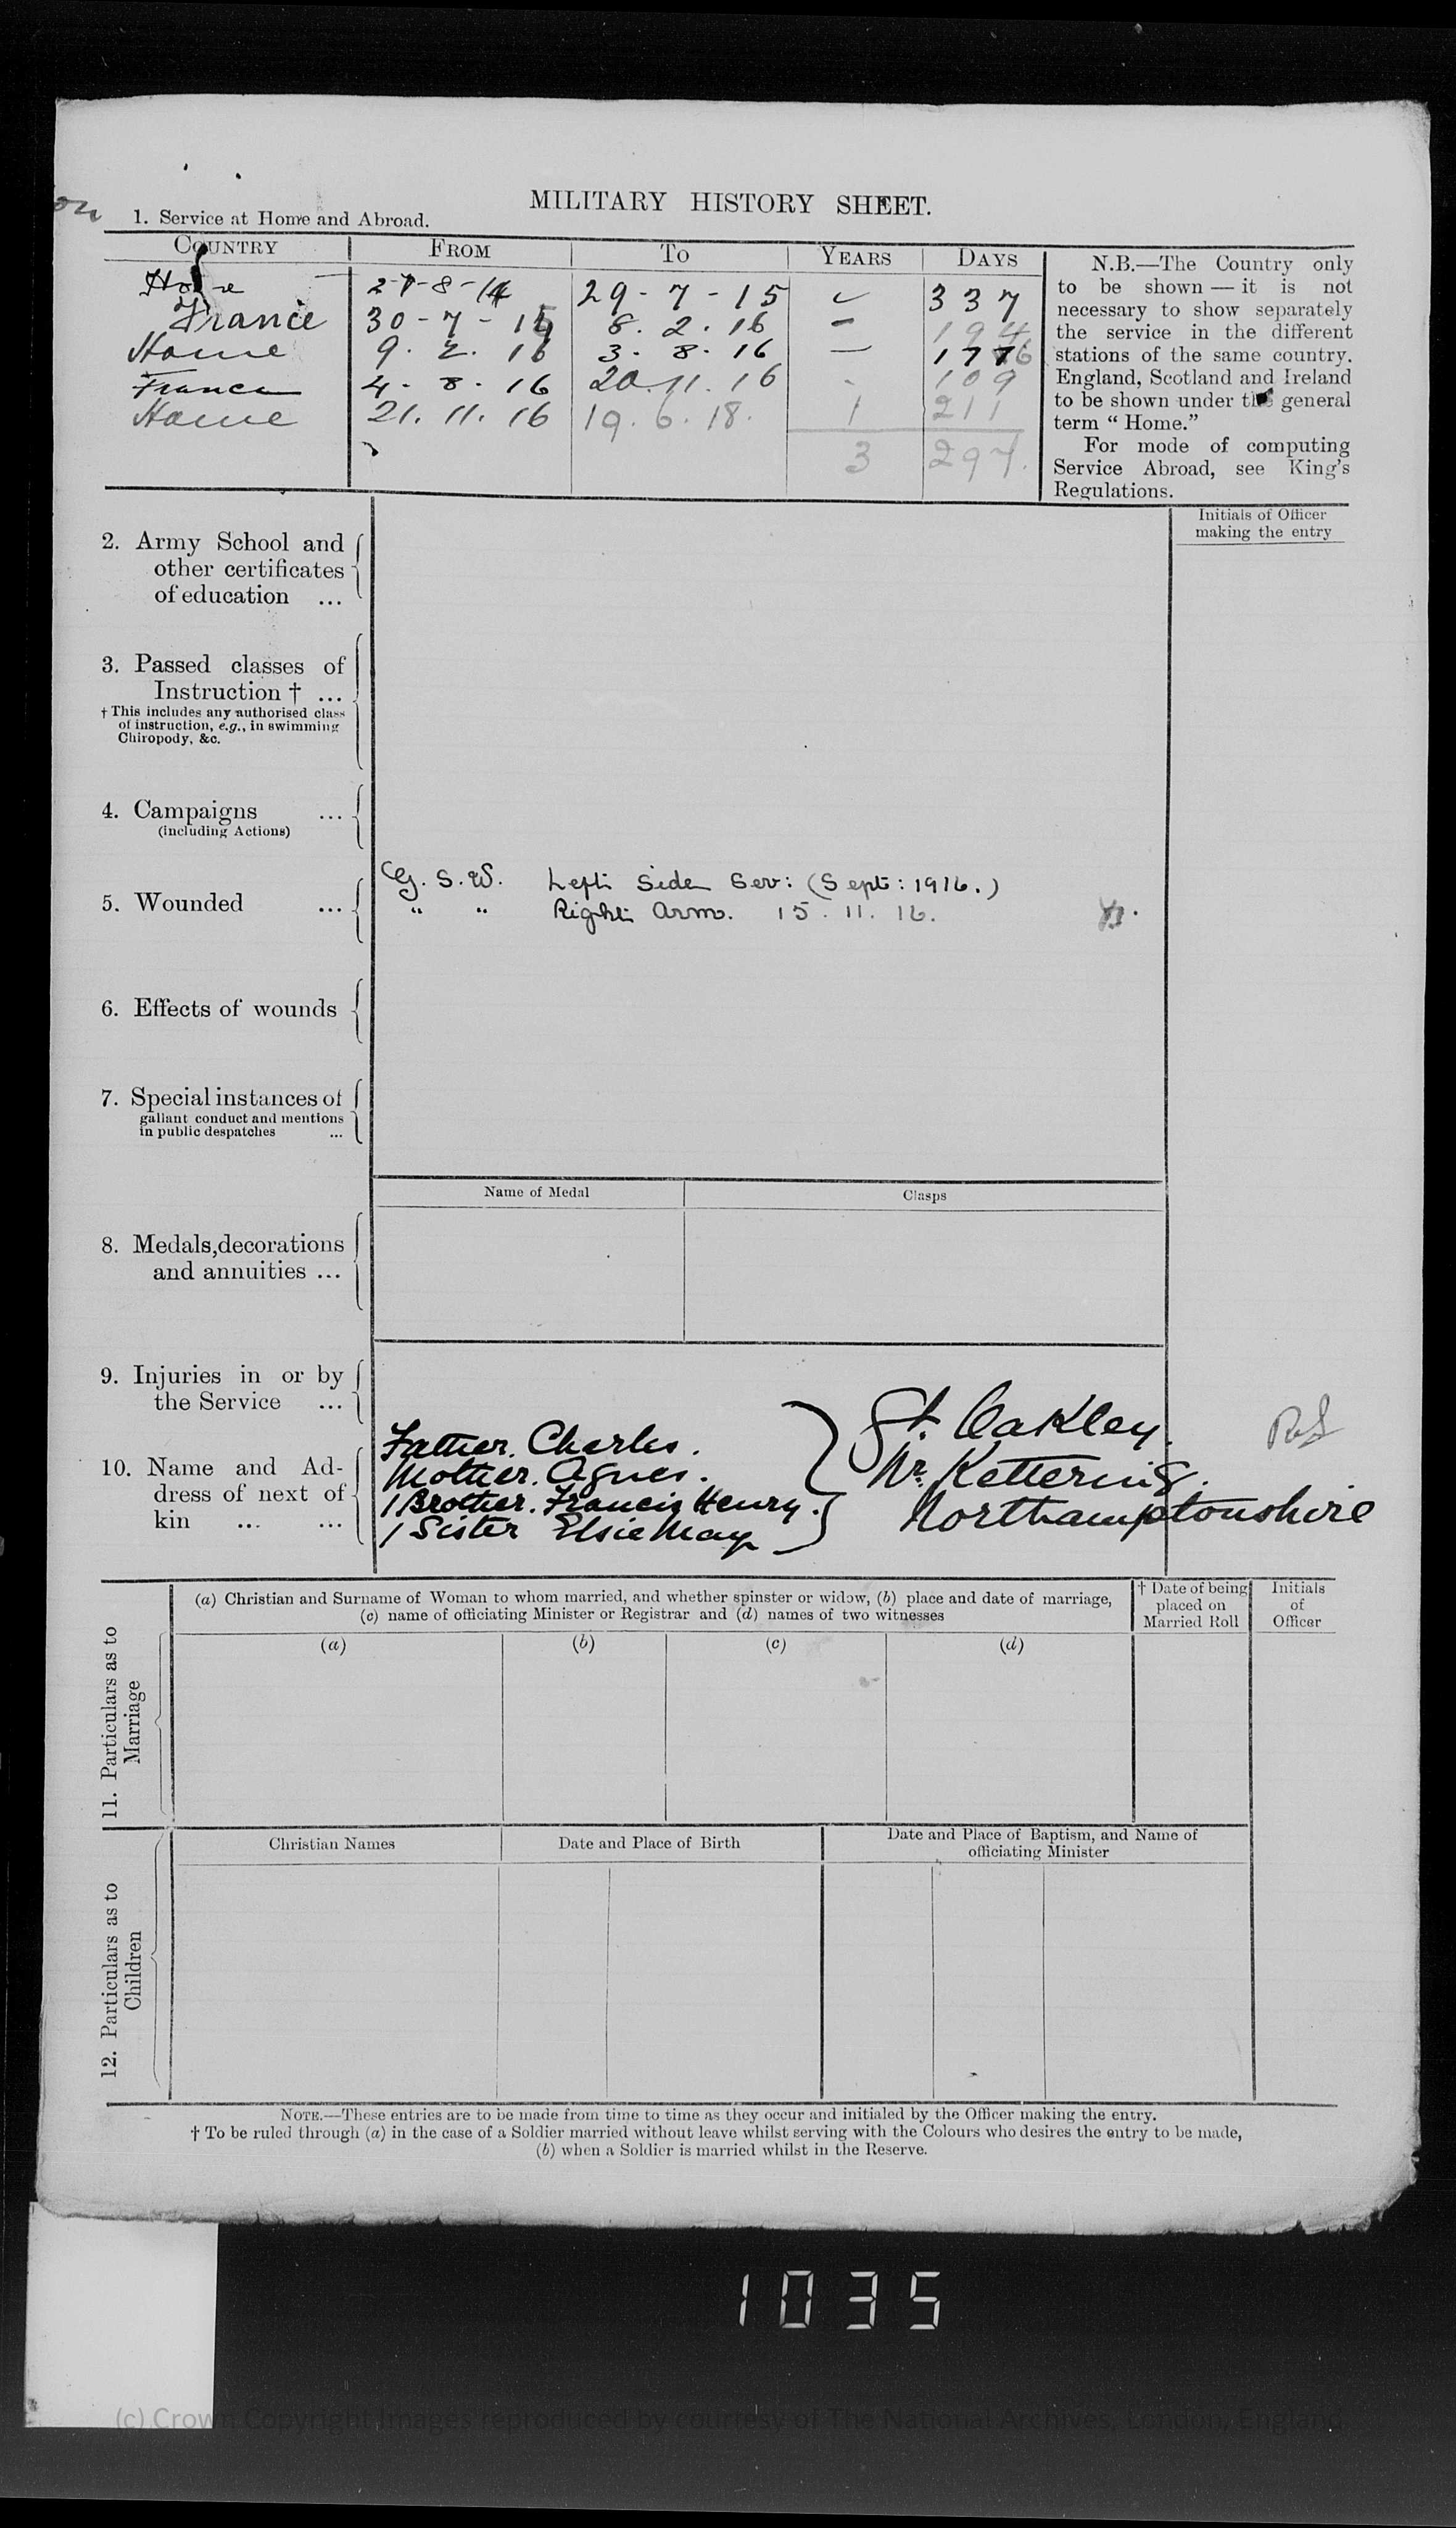 MILITARY HISTORY SHEET.
1. Service at Home and Abroad.
COUNTRY FROM TO YEARS DAYS
Home 27-8-14 29-7-15 337
France 30-7-15 8.2.16 — 194
Home 9.2.16 3.8.16 — 177
France 4-8-16 20.11.16 - 109
Home 21.11.16 19.6.18. 1 211
3 297.
N.B.—The Country only
to be shown — it is not
necessary to show separately
the service in the different
stations of the same country.
England, Scotland and Ireland
to be shown under the general
term “ Home.”
For mode of computing
Service Abroad, see King's
Regulations.
Initials of Officer
making the entry
2. Army School and
other certificates
of education ...
3. Passed classes of
Instruction † ...
† This includes any authorised class
of instruction, e.g., in swimming
Chiropody, &c.
4. Campaigns ...
(including Actions)
5. Wounded ...
G.S.W. Left Side Sev: (Sept: 1916.)
" " Right Arm. 15.11.16.
6. Effects of wounds
7. Special instances of
gallant conduct and mentions
in public despatches ...
Name of Medal Clasps
8. Medals, decorations
and annuities ...
9. Injuries in or by
the Service ...
10. Name and Ad-
dress of next of
kin ... ...
Father. Charles.
Mother. Agnes.
1 Brother. Francis Henry.
1 Sister Elsie May
Gt. Oakley.
Nr. Kettering.
Northamptonshire
11. Particulars as to
Marriage
(a) Christian and Surname of Woman to whom married, and whether spinster or widow, (b) place and date of marriage,
(c) name of officiating Minister or Registrar and (d) names of two witnesses
† Date of being
placed on
Married Roll
Initials
of
Officer
(a) (b) (c) (d)
12. Particulars as to
Children
Christian Names Date and Place of Birth Date and Place of Baptism, and Name of
officiating Minister
NOTE.—These entries are to be made from time to time as they occur and initialed by the Officer making the entry.
† To be ruled through (a) in the case of a Soldier married without leave whilst serving with the Colours who desires the entry to be made,
(b) when a Soldier is married whilst in the Reserve.
1035
(c) Crown Copyright Images reproduced by courtesy of The National Archives, London, England